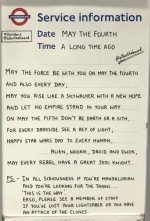 UNDERGROUND
Service information
Date MAY THE FOURTH
Time A LONG TIME AGO
MAY THE FORCE BE WITH YOU ON MAY THE FOURTH
AND ALSO EVERY DAY;
MAY YOU RISE LIKE A SKYWALKER WITH A NEW HOPE
AND LET NO EMPIRE STAND IN YOUR WAY.
ON MAY THE FIFTH DON'T BE DARTH OR A SITH,
FOR EVERY DARKSIDE SEE A REY OF LIGHT;
HAPPY STAR WARS DAY TO EVERY HUMAN,
ALIEN, WOOKIE, DROID AND EWOK,
MAY EVERY REBEL HAVE A GREAT JEDI KNIGHT.
PS - IN ALL SIDIOUSNESS IF YOU'RE MANDALORIAN
AND YOU'RE LOOKING FOR THE TRAINS...
"THIS IS THE WAY".
ERSO, PLEASE SEE A MEMBER OF STAFF
IF YOU'VE LOST YOUR LIGHTSABER OR YOU HAVE
AN ATTACK OF THE CLONES